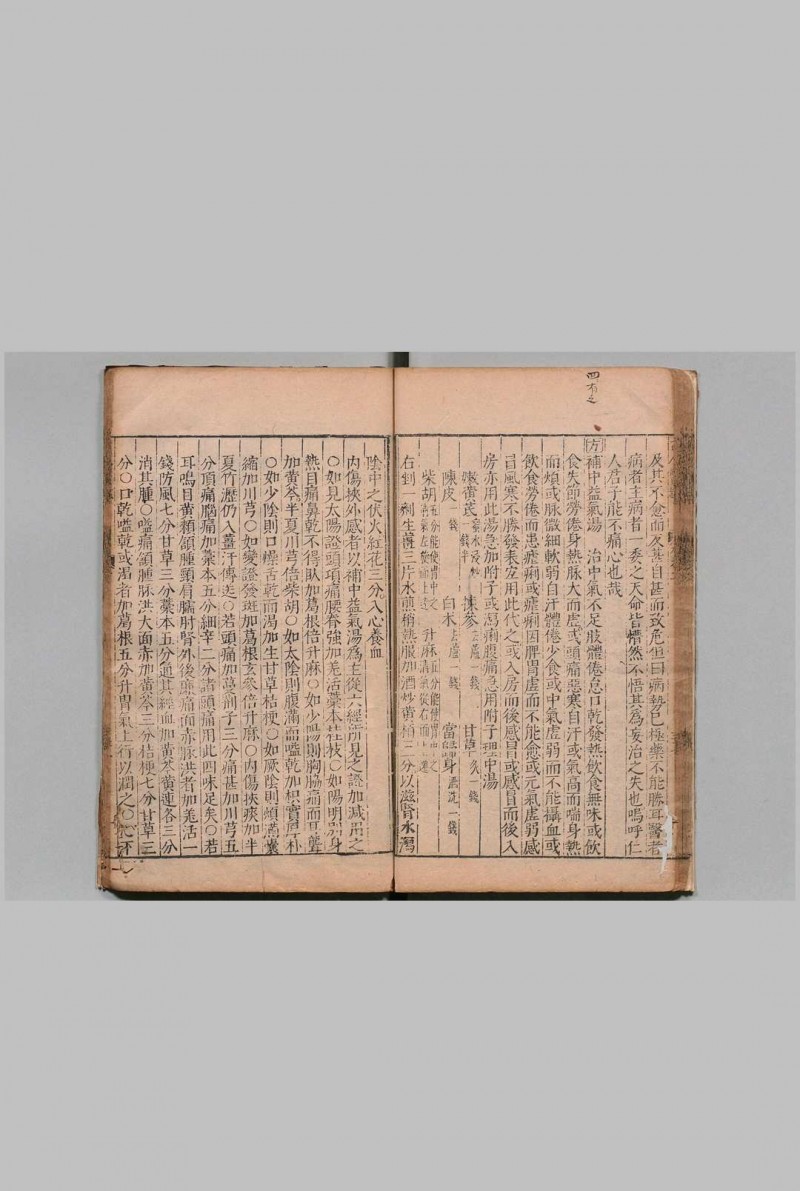 及其不愈而反甚自甚而致危但曰病勢已極藥不能勝耳醫者
病者主病者一委之天命皆懵然不悟其為妄治之失也嗚呼仁
人君子能不痛心也哉
方補中益氣湯 治中氣不足肢體倦怠口乾發熱飲食無味或飲
食失節勞倦身熱脉大而虛或頭痛惡寒自汗或氣高而喘身熱
而煩或脉微細軟弱自汗體倦少食或中氣虛弱而不能攝血或
飲食勞倦而患瘧痢或瘧痢因脾胃虛而不能愈或元氣虛弱感
冒風寒不勝發表宜用此代之或入房而後感冒或感冒而後入
房亦用此湯急加附子或瀉痢腹痛急用附子理中湯
嫩黃茋 揀參 去蘆一錢 甘草 炙一錢
陳皮 一錢 白术 去蘆一錢 當歸身 酒洗一錢
柴胡 五分能使胃中之清氣左旋而上達 升麻 五分能使胃中之清氣從右而上遷
右剉一劑生薑三片水煎稍熱服加酒炒黃栢二分以滋腎水瀉
陰中之伏火紅花三分入心養血
內傷挾外感者以補中益氣湯為主從六經所見之證加減用之
○如見太陽證頭項痛腰脊強加羌活藁本桂枝○如陽明則身
熱目痛鼻乾不得臥加葛根倍升麻○如少陽則胸脇痛而耳聾
加黃芩半夏川芎倍柴胡○如太陰則腹滿而嗌乾加枳實厚朴
○如少陰則口燥舌乾而渴加生甘草桔梗○如厥陰則煩滿囊
縮加川芎○如變證發斑加葛根玄參倍升麻○內傷挾痰加半
夏竹瀝仍入薑汁傳送○若頭痛加蔓荊子三分痛甚加川芎五
分頂痛腦痛加藁本五分細辛二分諸頭痛用此四味足矣○若
耳鳴目黃頰頷腫頸肩臑肘臂外後廉痛面赤脉洪者加羌活一
錢防風七分甘草三分藁本五分通其經血加黃芩黃連各三分
消其腫○嗌痛頷腫脉洪大面赤加黃芩三分桔梗七分甘草三
分○口乾嗌乾或渴者加葛根五分升胃氣上行以潤之○心下